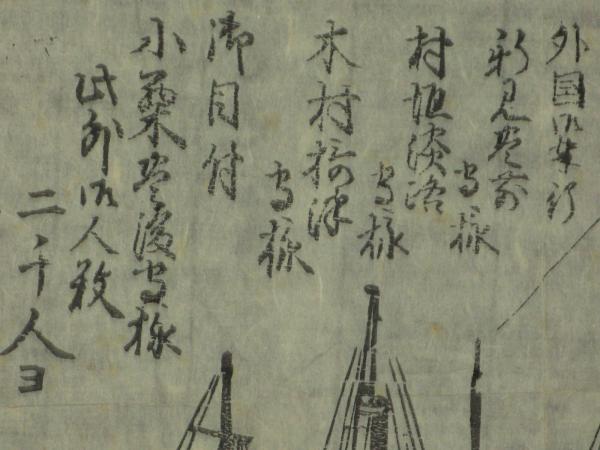 外国御奉行
新見豊前
守様
村垣淡路
守様
木村摂津
守様
御目付
小栗豊後守様
此外御人数
二千人ヨ